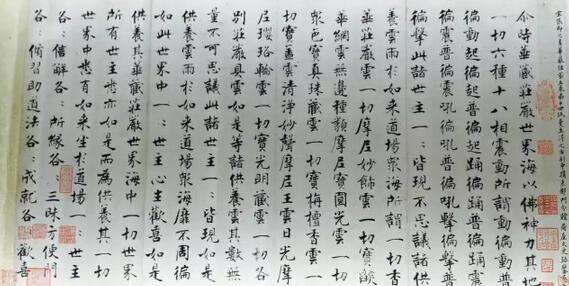 尒時華藏莊嚴世界海以佛神力其地
一切六種十八相震動所謂動徧動普
徧動起徧起普徧起踊徧踊普徧踊震
徧震普徧震吼徧吼普徧吼擊徧擊普
徧擊此諸世主一〻皆現不思議諸供
養雲雨於如来道場衆海所謂一切香
華莊嚴雲一切摩尼妙飾雲一切寶燄
華網雲無邊種類摩尼寶圓光雲一切
衆色寶真珠藏雲一切寶栴檀香雲一
切寶蓋雲清淨妙聲摩尼王雲日光摩
尼瓔珞輪雲一切寶光明藏雲一切各
別莊嚴具雲如是等諸供養雲其數無
量不可思議此諸世主一〻皆現如是
供養雲雨於如来道場衆海靡不周徧
如此世界中一〻世主心生歡喜如是
供養其華藏莊嚴世界海中一切世界
所有世主悉亦如是而為供養其一切
世界中悉有如来坐於道場一〻世主
各〻信解各〻所緣各〻三昧方便門
各〻修習助道法各〻成就各〻歡喜